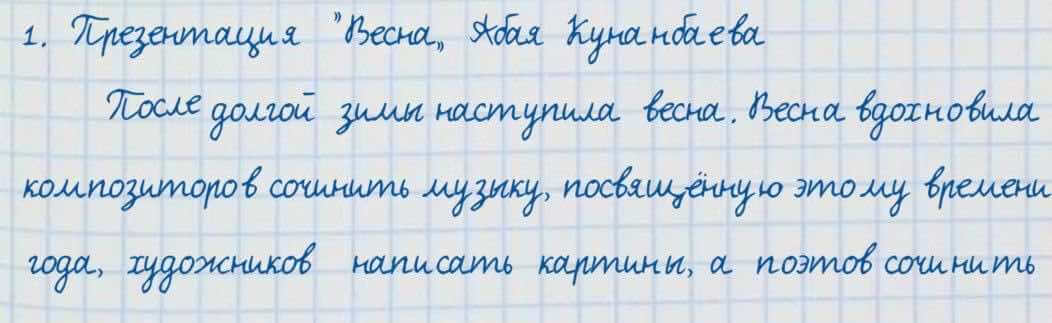 1. Презентация "Весна„ Абая Кунанбаева
После долгой зимы наступила весна. Весна вдохновила
композиторов сочинить музыку, посвящённую этому времени
года, художников написать картины, а поэтов сочинить